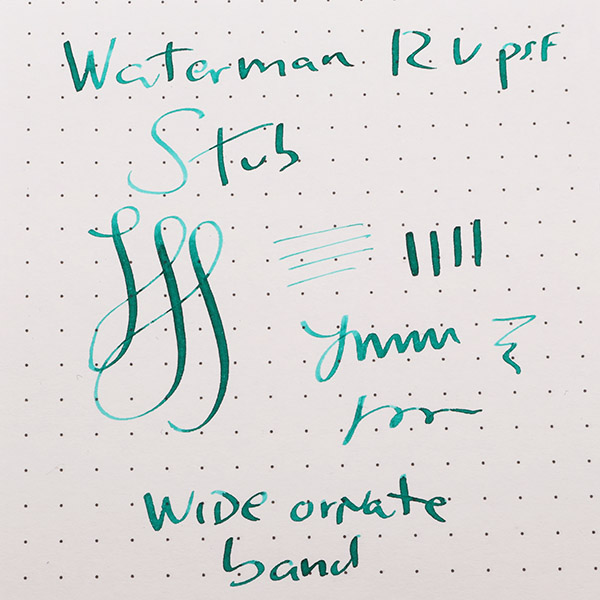 Waterman 12 V psf
Stub
WiDe orNate
band